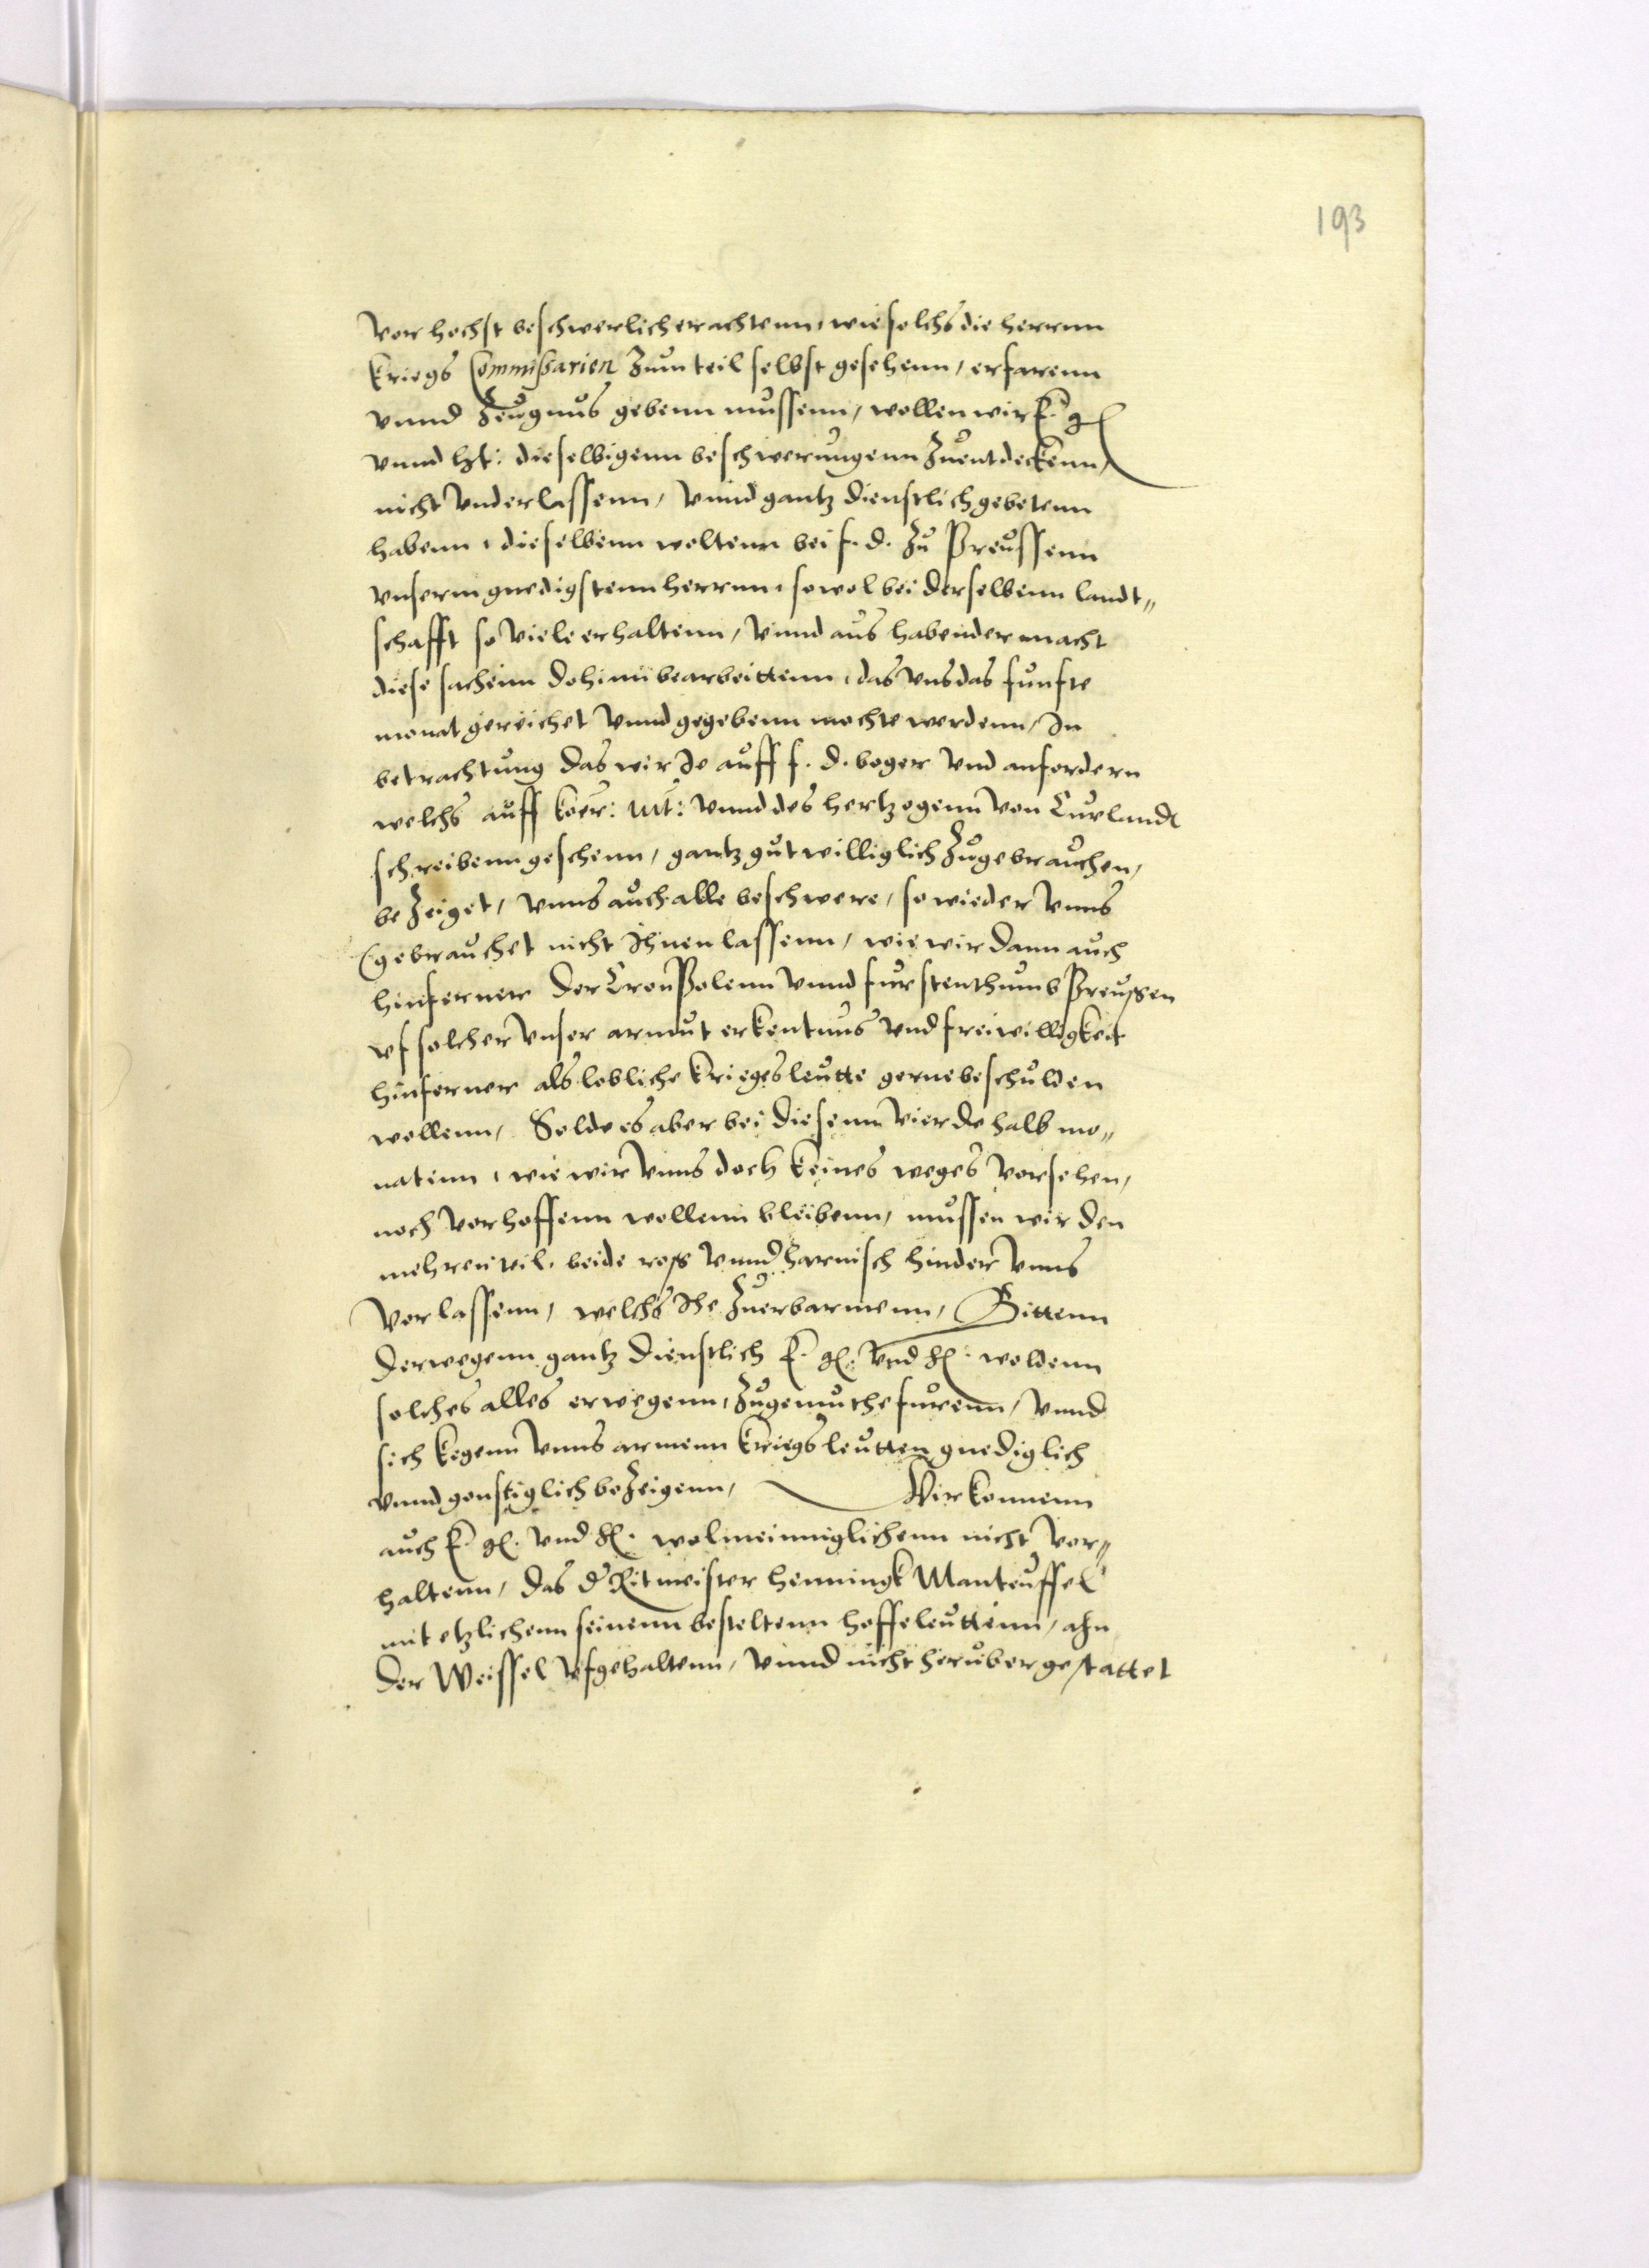 193
vor hochst beschwerlich erachtenn, wie solchs die herrnn
kriegs Commissarien zum teil selbst gesehenn, erfarenn
vnnd Zeugnus gebenn mussenn, wollen wir E. g.
vnnd ht: dieselbigenn beschwerungenn zuentdeckenn,
nicht vnderlassenn, vnnd gantz dienstlich gebetenn
habenn, dieselbenn woltenn bei f. d. zu Preussenn
vnserm gnedigstenn herrnn, sowol bei derselbenn landt„
schafft so viele erhaltenn, vnnd aus habender macht
diese sachenn dohinn bearbeittenn, das vns das funfte
monat gereichet vnnd gegebenn mochte werdenn, In
betrachtung das wir Je auff f. d. beger vnd anfordern
welchs auff koer: Mt: vnnd des hertzogenn von Curlandt
schreibenn geschenn, gantz gutwilliglich zugebrauchen,
bezeiget, vnns auch alle beschwere, so wieder vnns
gebrauchet nicht Ihrren lassenn, wie wir dann auch
hinferner der Cron Polenn vnnd furstenthumb Preussen
vf solcher vnser armut erkentnus vnd freiwilligkeit
hinferner als lobliche kriegesleutte gerne beschulden
wollenn, Solde es aber bei diesenn vierdehalb mo„
natenn, wie wir vnns doch keines weges vorsehen,
noch vorhoffenn wollenn bleibenn, mussen wir den
mehrenteil, beide ross vnnd harnisch hinder vnns
vorlassenn, welchs Ihe zuerbarmenn, Bittenn
derwegenn gantz dienstlich E. g. vnd h. woldenn
solches alles erwegenn, zugemuthe furenn, vnnd
sich kegenn vnns armenn kriegsleutten gnediglich
vnnd gonstiglich bezeigenn, Wir konnenn
auch E. g. vnd h. wolmeinniglichenn nicht vor„
haltenn, das d Ritmeister Henningk Manteuffel
mit etzlichenn seinenn besteltenn hoffeleuttenn, ahn
der Weissel vfgehaltenn, vnnd nicht heruber gestattet